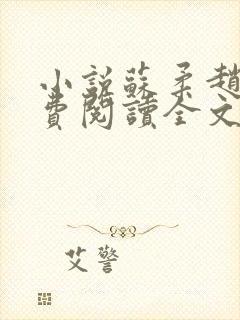 小说苏柔趙
費閱讀全文
艾警